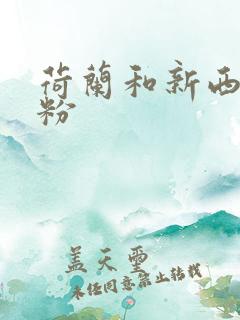 荷蘭和新西
粉
蓋天聖
未经同意禁止转载